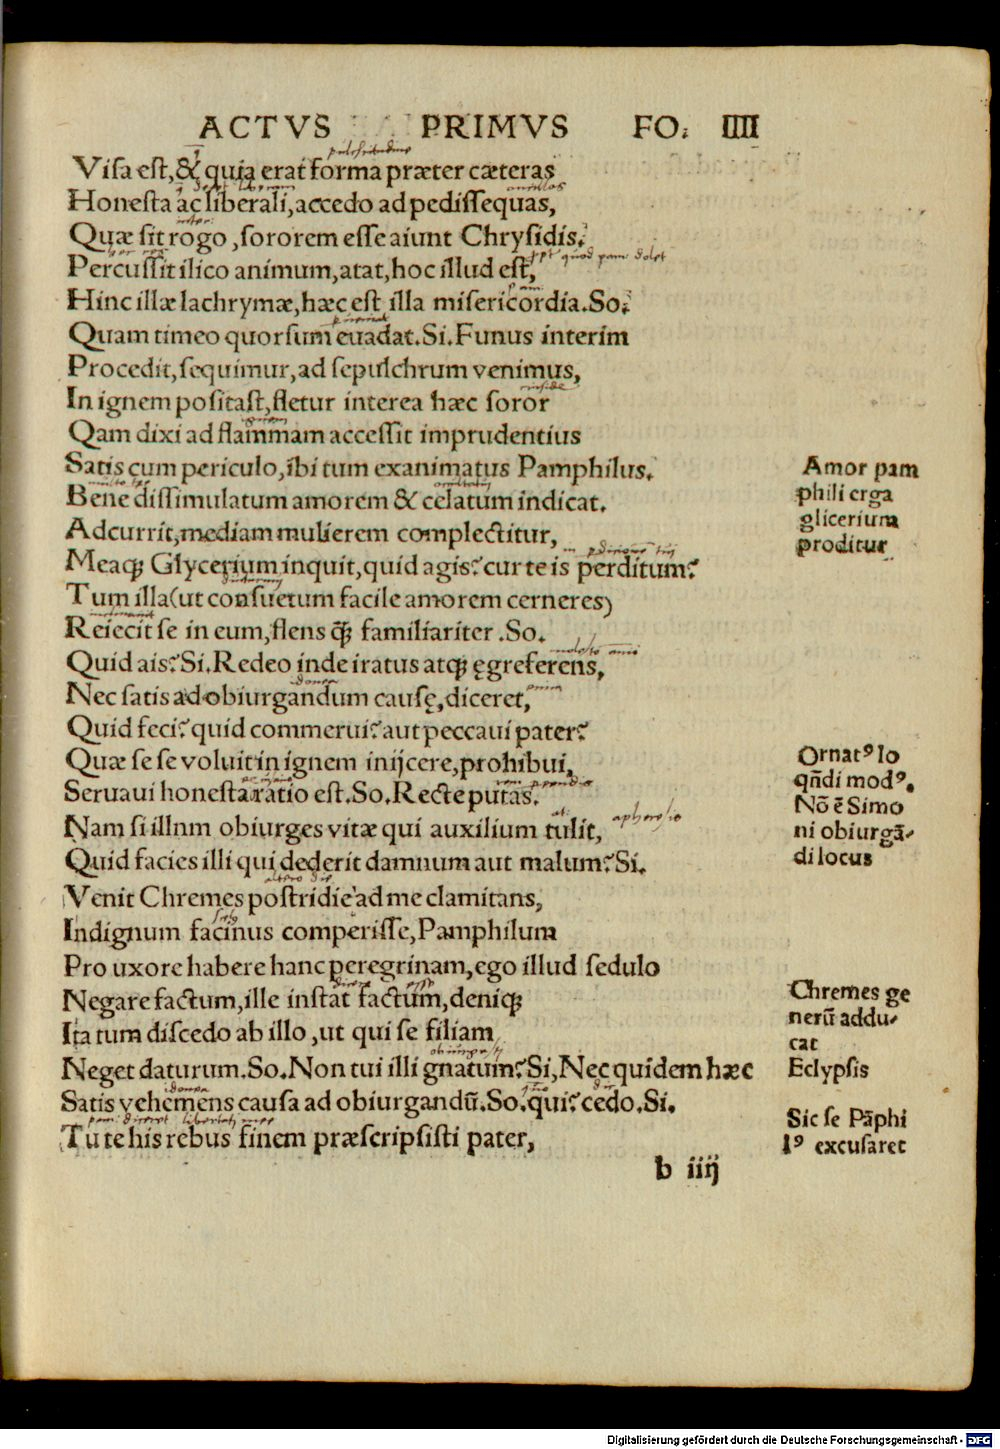 ACTVS PRIMVS FO. IIII
Viſa eſt, & quia erat forma præter cæteras
Honeſta ac liberali, accedo ad pediſſequas,
Quæ ſit rogo, ſororem eſſe aiunt Chryſidis.
Percuſſit ilico animum, atat, hoc illud eſt,
Hinc illæ lachrymæ, hæc eſt illa miſericordia. So.
Quam timeo quorſum euadat. Si. Funus interim
Procedit, ſequimur, ad ſepulchrum venimus,
In ignem poſitaſt, fletur interea hæc ſoror
Qam dixi ad flammam acceſſit imprudentius
Satis cum periculo, ibi tum exanimatus Pamphilus.
Bene diſſimulatum amorem & celatum indicat.
Adcurrit, mediam mulierem complectitur,
Meaqꝫ Glycerium inquit, quid agis? cur te is perditum?
Tum illa (ut conſuetum facile amorem cerneres)
Reiecit ſe in eum, flens qꝫ̃ familiariter. So.
Quid ais? Si. Redeo inde iratus atqꝫ ęgre ferens,
Nec ſatis ad obiurgandum cauſę, diceret,
Quid feci? quid commerui? aut peccaui pater?
Quæ ſe ſe voluit in ignem inijcere, prohibui,
Seruaui honeſta ratio eſt. So. Recte putas.
Nam ſi illnm obiurges vitæ qui auxilium tulit,
Quid facies illi qui dederit damnum aut malum? Si.
Venit Chremes poſtridie ad me clamitans,
Indignum facinus comperiſſe, Pamphilum
Pro uxore habere hanc peregrinam, ego illud ſedulo
Negare factum, ille inſtat factum, deniqꝫ
Ita tum diſcedo ab illo, ut qui ſe filiam
Neget daturum. So. Non tui illi gnatum? Si, Nec quidem hæc
Satis vehemens cauſa ad obiurgandū. So. qui? cedo. Si.
Tu te his rebus finem præſcripſiſti pater,
b iiij
Amor pam
phili erga
glicerium
proditur
Ornatꝰ lo
qn̄di modꝰ.
Nō ē Simo
ni obiurgā-
di locus
Chremes ge
nerū addu-
cat
Eclypſis
Sic ſe Pāphi
lꝰ excuſaret
Digitalisierung gefördert durch die Deutsche Forschungsgemeinschaft - DFG